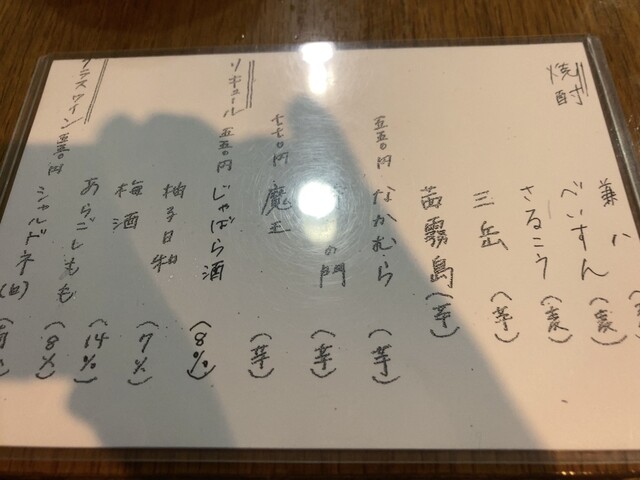 焼酎
兼八 (麦)
べいすん (麦)
さるこう (麦)
三岳 (芋)
茜霧島 (芋)
五五〇円 なかむら (芋)
の門 (芋)
七七〇円 魔王 (芋)
リキュール 五五〇円 じゃばら酒 (8%)
柚子日和 (7%)
梅酒 (14%)
あらごしもも (8%)
グラスワイン 五五〇円 シャルドネ (白)